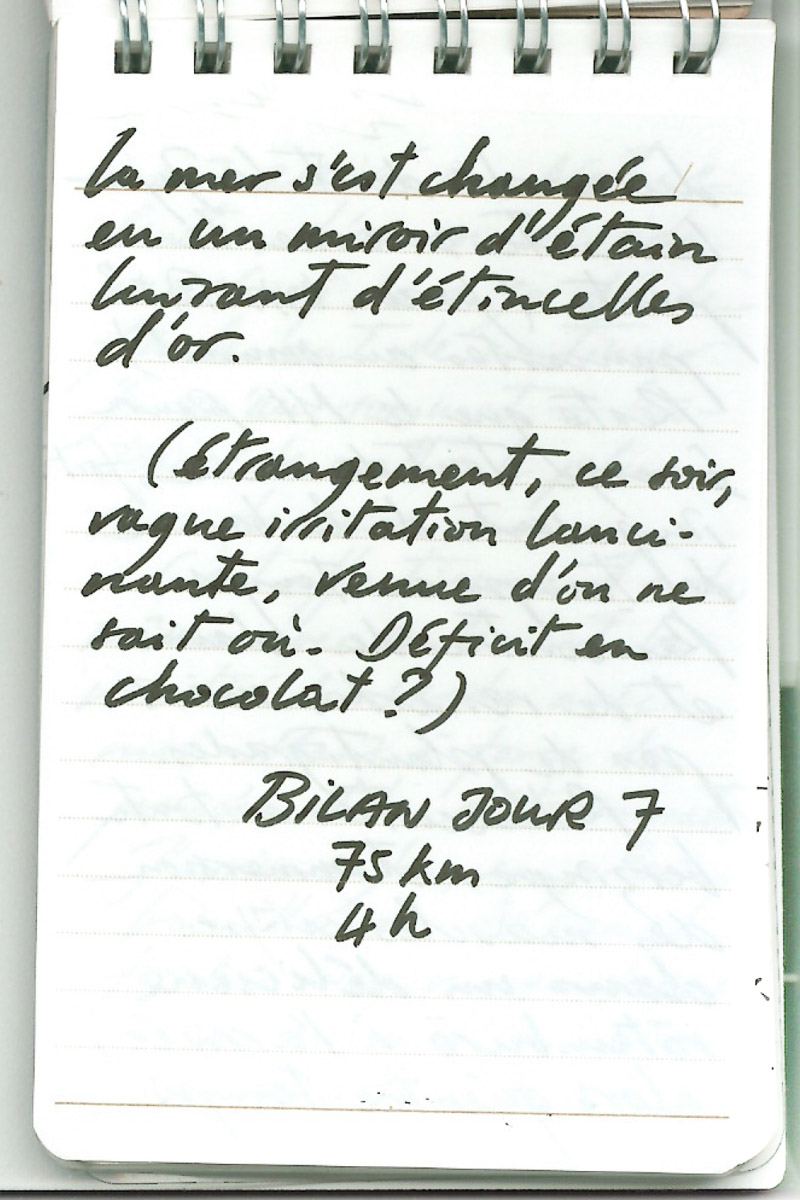 La mer s'est changée
en un miroir d'étain
luisant d'étincelles
d'or.
(étrangement, ce soir,
vague irritation lanci-
nante, venue d'on ne
sait où. Déficit en
chocolat ?)
BILAN JOUR 7
75 km
4 h